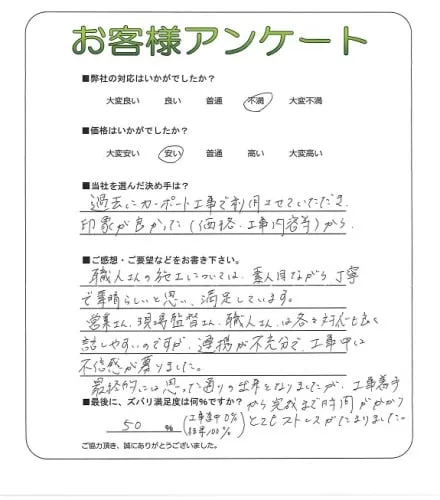 お客様アンケート
■弊社の対応はいかがでしたか?
大変良い 良い 普通 不満 大変不満
■価格はいかがでしたか?
大変安い 安い 普通 高い 大変高い
■当社を選んだ決め手は?
過去にカーポート工事で利用させていただき
印象が良かった(価格・工事内容等)から。
■ご感想・ご要望などをお書き下さい。
職人さんの施工については、素人目ながら丁寧
で素晴らしいと思い、満足しています。
営業さん、現場監督さん、職人さん、は各々対応も良く
話しやすいのですが、連携が不充分で、工事中に
不信感が募りました。
最終的には思った通りの出来となりましたが、工事着手
から完成まで時間がかかり
とてもストレスがたまりました。
■最後に、ズバリ満足度は何%ですか?
50 % (工事途中0% 結果100%)
ご協力頂き、誠にありがとうございました。